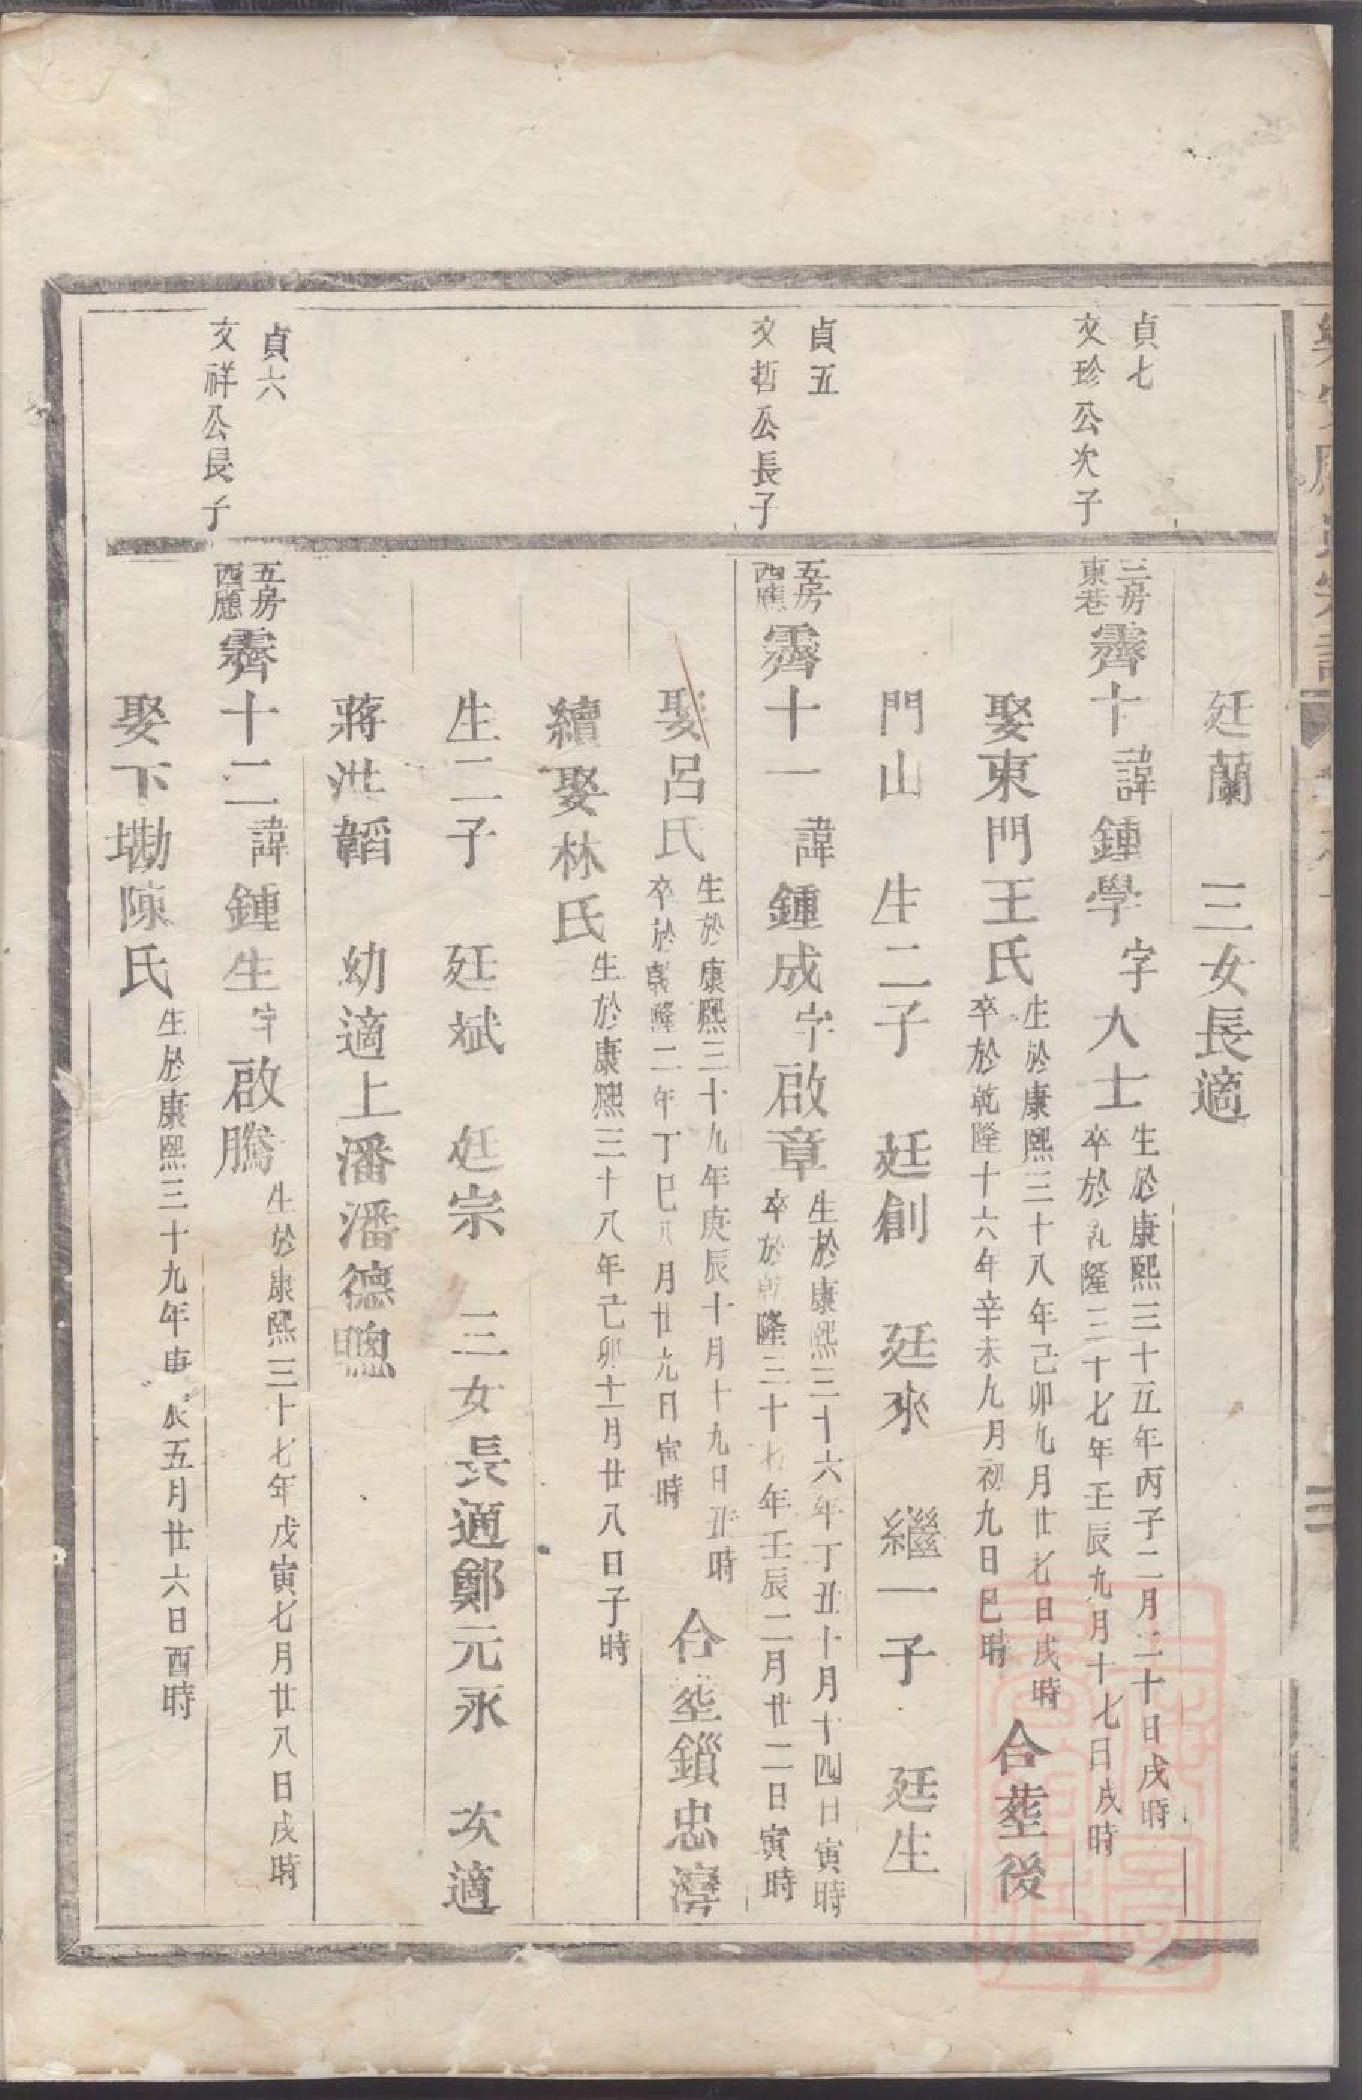 廷蘭　三女長適
貞七
文珍公次子
三房
東巷
霽十
諱
鍾學
字
人士
生於康熙三十五年丙子二月二十日戌時
卒於乾隆三十七年壬辰九月十七日戌時
娶東門王氏
生於康熙三十八年己卯九月廿七日戌時
卒於乾隆十六年辛未九月初九日巳時
合塟後
門山　生二子　廷創　廷來　繼一子　廷生
貞五
文哲公長子
五房
西廳
霽十一
諱
鍾成
字
啟章
生於康熙三十六年丁丑十月十四日寅時
卒於乾隆三十七年壬辰二月廿二日寅時
娶呂氏
生於康熙三十九年庚辰十月十九日丑時
卒於乾隆二年丁巳八月廿九日寅時
合塟鎻忠灣
續娶林氏
生於康熙三十八年己卯十一月廿八日子時
生二子　廷斌　廷宗　三女長適鄭元永　次適
蔣洪韜　幼適上潘潘德聰
貞六
文祥公長子
五房
西廳
霽十二
諱
鍾生
字
啟騰
生於康熙三十七年戊寅七月廿八日戌時
娶下墈陳氏
生於康熙三十九年庚辰五月廿六日酉時